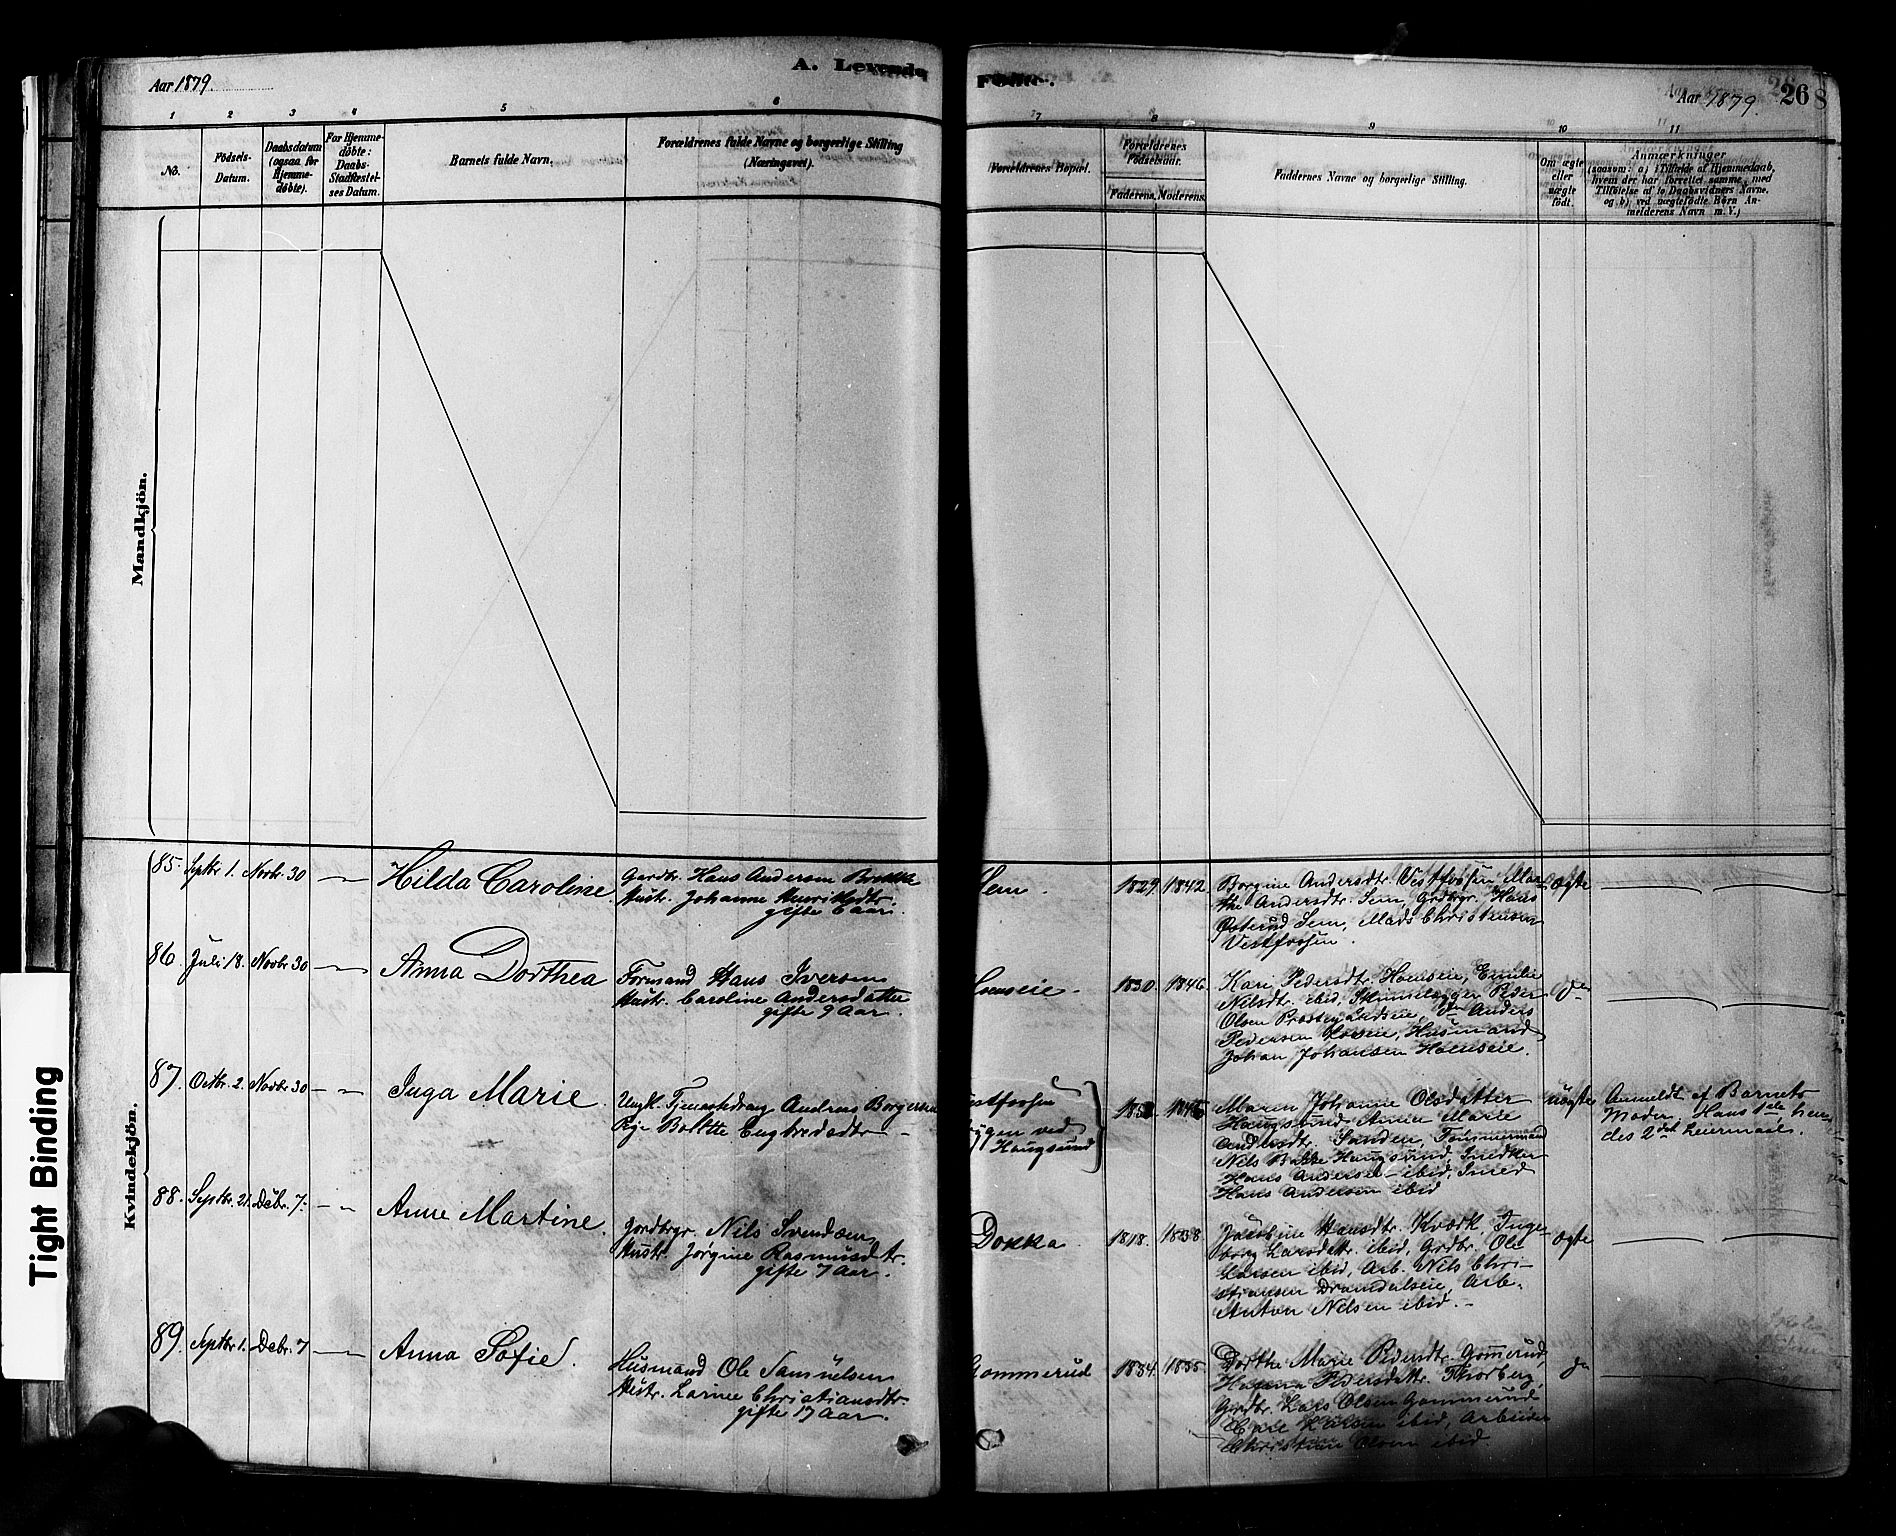 Aar 1879.
A. Levende
Födte.
Aar 1879.
26
8
1 2 3 4 5 6
7 8 9 10 11
No.
Födsels-
Datum.
Daabsdatum
(ogsaa for
Hjemme-
döbte).
For Hjemme-
döbte:
Daabs-
Stadfæstel-
ses Datum.
Barnets fulde Navn.
Forældrenes fulde Navne og borgerlige Stilling
(Næringsvei).
Forældrenes Bopæl.
Forældrenes
Födselsaar.
Faderens. Moderens.
Faddernes Navne og borgerlige Stilling.
Om ægte
eller
uægte
födt.
Anmærkninger
(saasom: a) i Tilfælde af Hjemmedaab,
hvem der har forrettet samme, med
Tilföielse af to Daabsvidners Navne.
og b) ved uægtefödte Börn An-
melderens Navn m. V.)
Mandkjön.
Kvindekjön.
85. Septbr 1. Novbr. 30
Hilda Caroline
Gardbr. Hans Andersen Brekke
Hustr. Johanne Henriksdtr.
gifte 6 aar.
Sem.
1829. 1842.
Borgine Andersdtr. Vestfossen, Mar-
the Andersdtr. Sem, Grdbrgr. Hans
Sem, Mads Christensen
Vestfossen.
ægte
86. Juli 18. Novbr 30
Anna Dorthea
Formand Hans Iversen
Hustr. Caroline Andersdatter
gifte 9 Aar.
Hoenseie.
1830. 1846.
Kari Pedersdtr. Hoenseie, Emilie
Nilsdtr. ibid, Skinnelægger Peder
Olsen Anders
Pedersen Husmand
Johan Johansen Hoenseie.
do
87. Octbr. 2. Novbr 30
Inga Marie
Ungk. Tjenestedreng Andreas Borgersen
Pige Bolette Engebredsdtr
Vestfossen
ved
Hougsund
Maren Johanne Olsdatter
Hougsund, Anne Marie
Andersdtr. Sanden, Tømmermand
Nils Hougsund, Snedker
Hans Andersen ibid, Smed
Hans Andersen ibid
uægte
Anmeldt af Barnets
Moder, Hans 1ste hen-
des 2det Leiermaal.
88. Septbr. 21. Debr. 7.
Anne Martine.
Gardbrgr. Nils Svendsen
Hustr. Jørgine Rasmusdtr.
gifte 7 Aar.
Dokka
1818. 1838
Jacobine Hansdtr. Kværk, Inge-
borg Larsdatr. ibid, Grdbr. Ole
Larsen ibid, Arb. Nils Chri-
stiansen Arb.
Anton Nilsen ibid.
ægte
89. Septbr 1. Debr. 7
Anna Sofie.
Husmand Ole Samuelsen
Hustr. Larine Christiansdtr.
gifte 17 Aar.
Gommerud
1834. 1835
Dorthe Marie Pedersdtr. Gommerud,
Pedersdatr. Thorberg,
Grdbr. Lars Olsen Gommerud,
Larsen ibid, Arbeider
Christian Olsen ibid.
do
Tight Binding